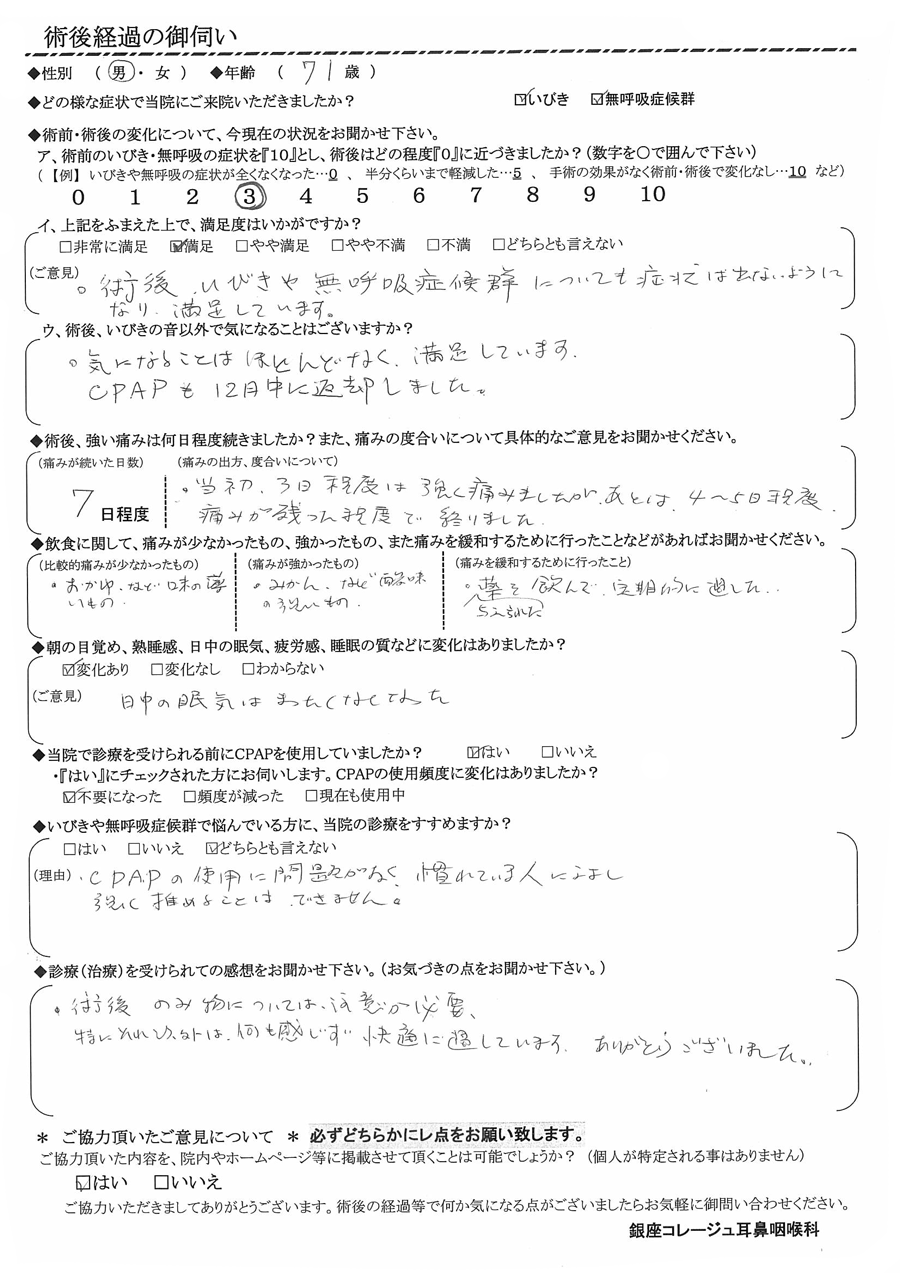 術後経過の御伺い
◆性別 (男・女) ◆年齢 (71歳)
◆どの様な症状で当院にご来院いただきましたか? ☑いびき ☑無呼吸症候群
◆術前・術後の変化について、今現在の状況をお聞かせ下さい。
ア、術前のいびき・無呼吸の症状を『10』とし、術後はどの程度『0』に近づきましたか?(数字を〇で囲んで下さい)
(【例】いびきや無呼吸の症状が全くなくなった…0 、半分くらいまで軽減した…5 、手術の効果がなく術前・術後で変化なし…10 など)
0 1 2 ③ 4 5 6 7 8 9 10
イ、上記をふまえた上で、満足度はいかがですか?
□非常に満足 ☑満足 □やや満足 □やや不満 □不満 □どちらとも言えない
(ご意見)。術後、いびきや無呼吸症候群についても症状は出ないように
なり、満足しています。
ウ、術後、いびきの音以外で気になることはございますか?
。気になることはほとんどなく、満足しています.
CPAPも12月中に返却しました。
◆術後、強い痛みは何日程度続きましたか?また、痛みの度合いについて具体的なご意見をお聞かせください。
(痛みが続いた日数) (痛みの出方、度合いについて)
7日程度 。当初、3日程度は強く痛みましたが、あとは、4〜5日程度.
痛みが残った程度で終りました.
◆飲食に関して、痛みが少なかったもの、強かったもの、また痛みを緩和するために行ったことなどがあればお聞かせください。
(比較的痛みが少なかったもの) (痛みが強かったもの) (痛みを緩和するために行ったこと)
・おかゆ、など味の薄 ・みかん、など酸味 ・薬を飲んで、定期的に過した..
いもの. の強いもの. 与えられた
◆朝の目覚め、熟睡感、日中の眠気、疲労感、睡眠の質などに変化はありましたか?
☑変化あり □変化なし □わからない
(ご意見) 日中の眠気はまったくなくなった
◆当院で診療を受けられる前にCPAPを使用していましたか? ☑はい □いいえ
・『はい』にチェックされた方にお伺いします。CPAPの使用頻度に変化はありましたか?
☑不要になった □頻度が減った □現在も使用中
◆いびきや無呼吸症候群で悩んでいる方に、当院の診療をすすめますか?
□はい □いいえ ☑どちらとも言えない
(理由)・CPAPの使用に問題がなく、慣れている人には
強く推めることはできません。
◆診療(治療)を受けられての感想をお聞かせ下さい。(お気づきの点をお聞かせ下さい。)
。術後のみ物については、注意が必要、
特にそれ以外は、何も感じず快適に過しています. ありがとうございました。
* ご協力頂いたご意見について * 必ずどちらかにレ点をお願い致します。
ご協力頂いた内容を、院内やホームページ等に掲載させて頂くことは可能でしょうか? (個人が特定される事はありません)
☑はい □いいえ
ご協力いただきましてありがとうございます。術後の経過等で何か気になる点がございましたらお気軽に御問い合わせください。
銀座コレージュ耳鼻咽喉科